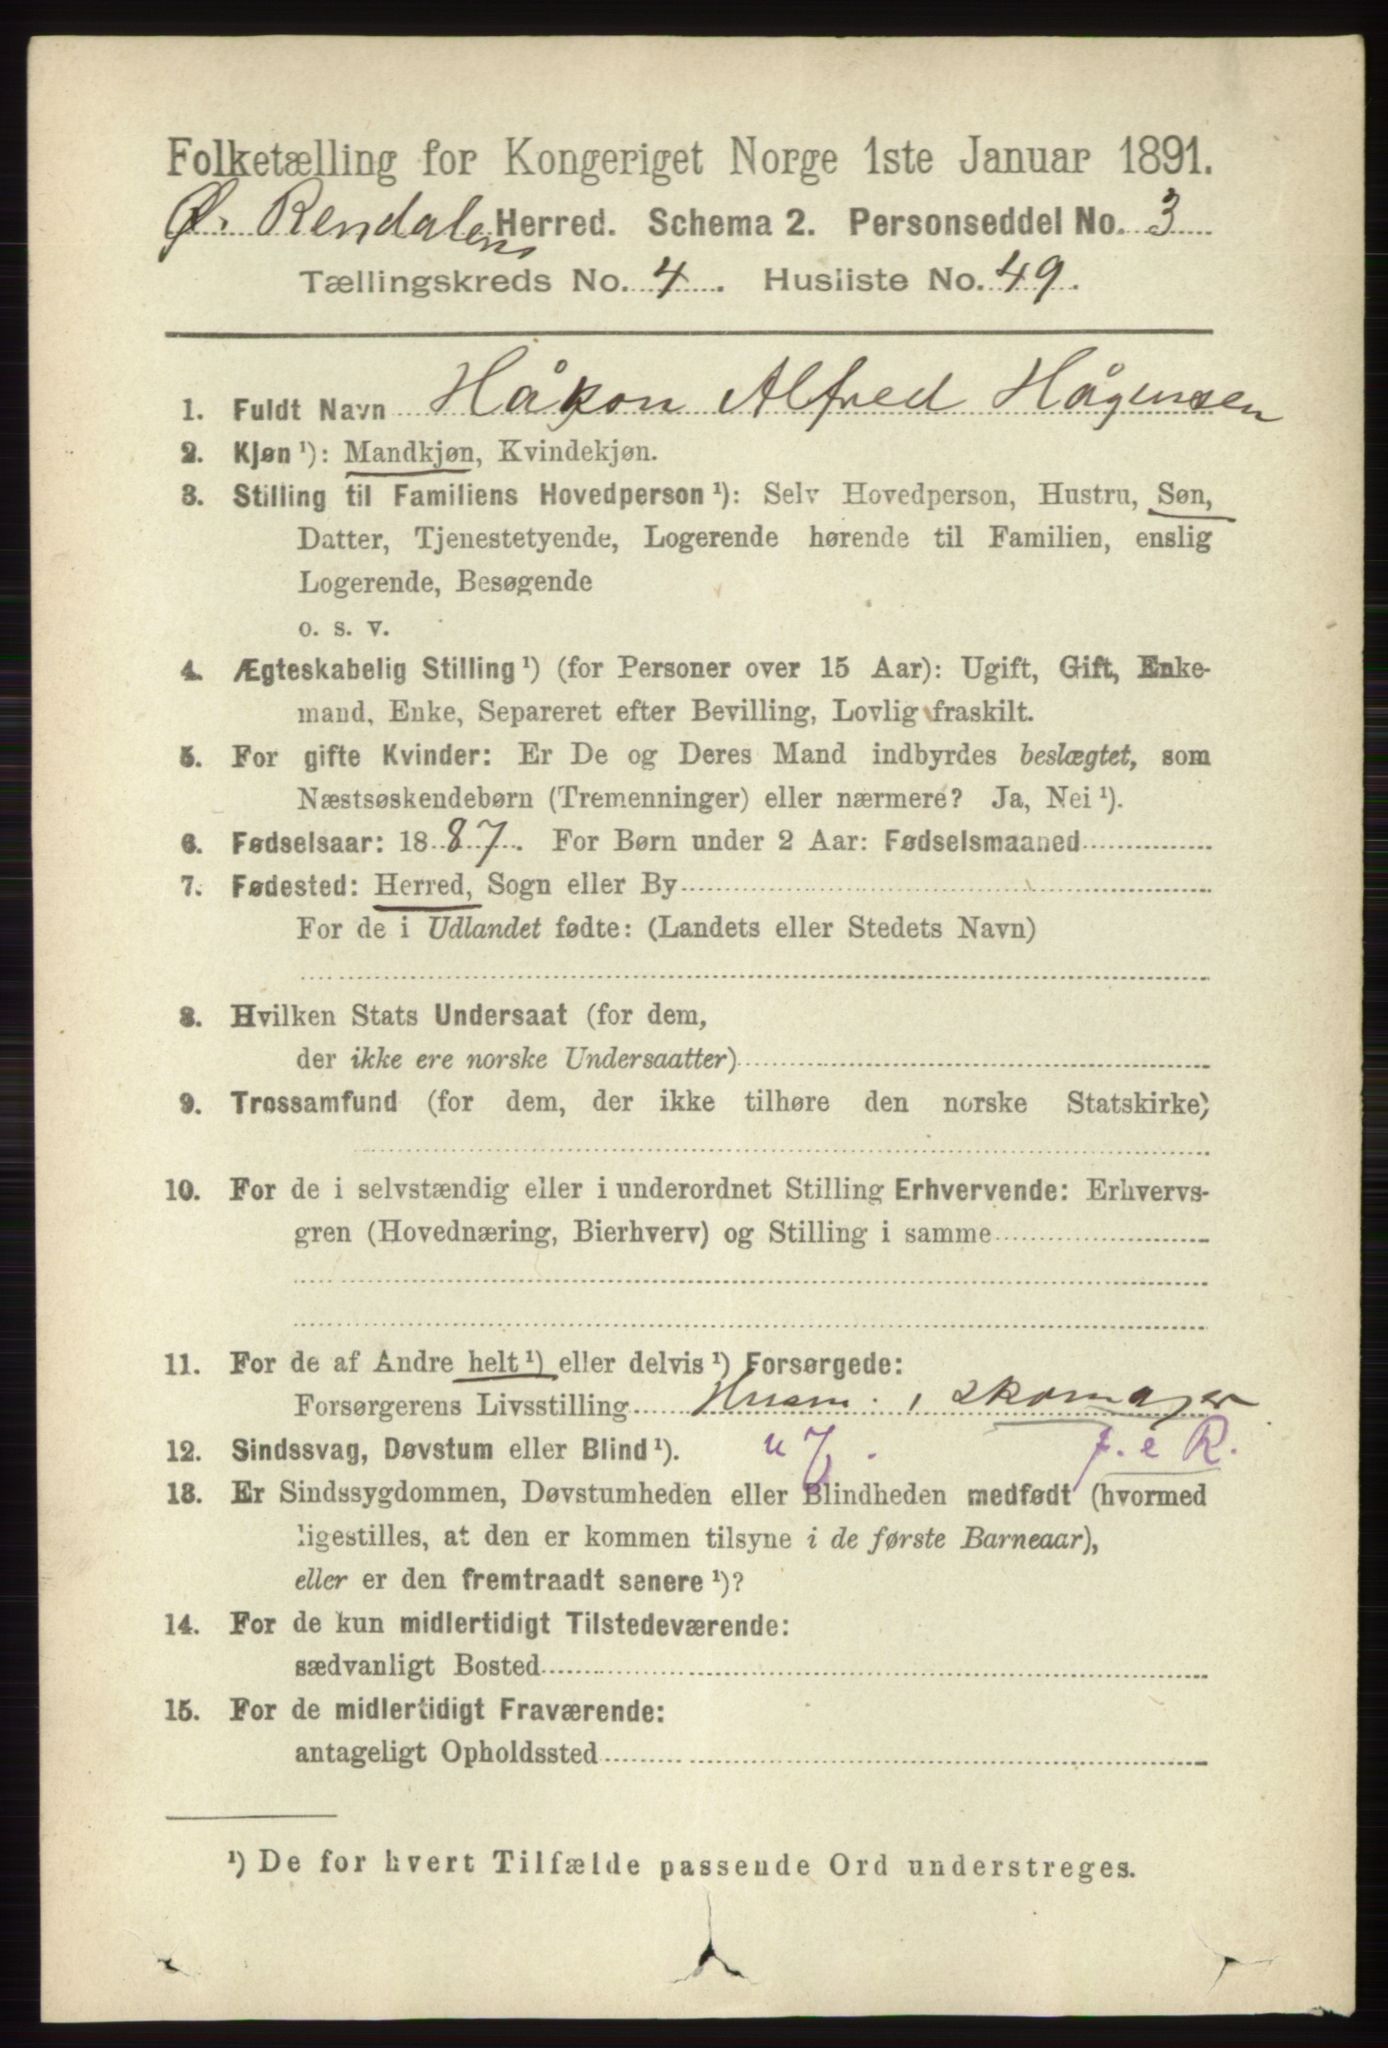 Folketælling for Kongeriget Norge 1ste Januar 1891.
Ø. Rendalens Herred. Schema 2. Personseddel No. 3
Tællingskreds No. 4. Husliste No. 49.
1. Fuldt Navn Håkon Alfred Hågensen
2. Kjøn ¹): Mandkjøn, Kvindekjøn.
3. Stilling til Familiens Hovedperson ¹): Selv Hovedperson, Hustru, Søn,
Datter, Tjenestetyende, Logerende hørende til Familien, enslig
Logerende, Besøgende
o. s. v.
4. Ægteskabelig Stilling ¹) (for Personer over 15 Aar): Ugift, Gift, Enke-
mand, Enke, Separeret efter Bevilling, Lovlig fraskilt.
5. For gifte Kvinder: Er De og Deres Mand indbyrdes beslægtet, som
Næstsøskendebørn (Tremenninger) eller nærmere? Ja, Nei ¹).
6. Fødselsaar: 1887. For Børn under 2 Aar: Fødselsmaaned
7. Fødested: Herred, Sogn eller By
For de i Udlandet fødte: (Landets eller Stedets Navn)
8. Hvilken Stats Undersaat (for dem,
der ikke ere norske Undersaatter)
9. Trossamfund (for dem, der ikke tilhøre den norske Statskirke)
10. For de i selvstændig eller i underordnet Stilling Erhvervende: Erhvervs-
gren (Hovednæring, Bierhverv) og Stilling i samme
11. For de af Andre helt ¹) eller delvis ¹) Forsørgede:
Forsørgerens Livsstilling Husm. , Skomager
12. Sindssvag, Døvstum eller Blind ¹).
13. Er Sindssygdommen, Døvstumheden eller Blindheden medfødt (hvormed
ligestilles, at den er kommen tilsyne i de første Barneaar),
eller er den fremtraadt senere ¹)?
14. For de kun midlertidigt Tilstedeværende:
sædvanligt Bosted
15. For de midlertidigt Fraværende:
antageligt Opholdssted
¹) De for hvert Tilfælde passende Ord understreges.